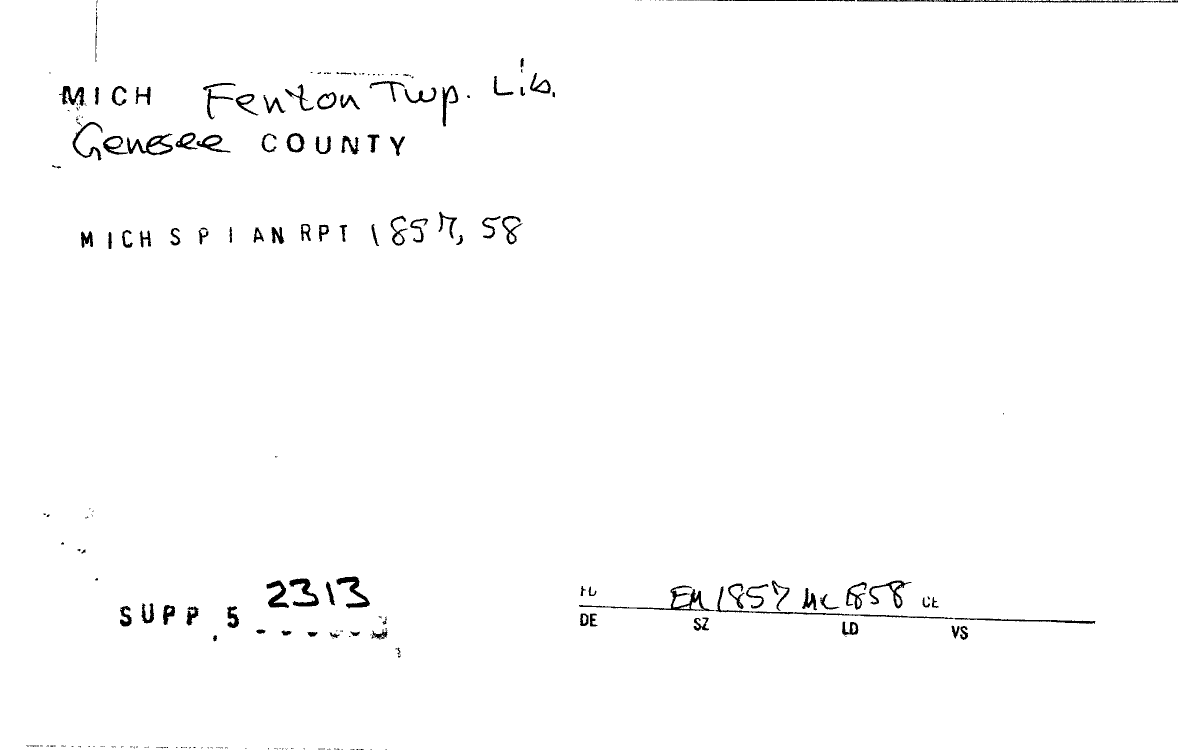 MICH Fenton Twp. Lib.
Genesee COUNTY
MICH S P I AN RPT 1857, 58
SUPP. 5 2313
EM 1857 MC 1858 CE
DE SZ LD VS